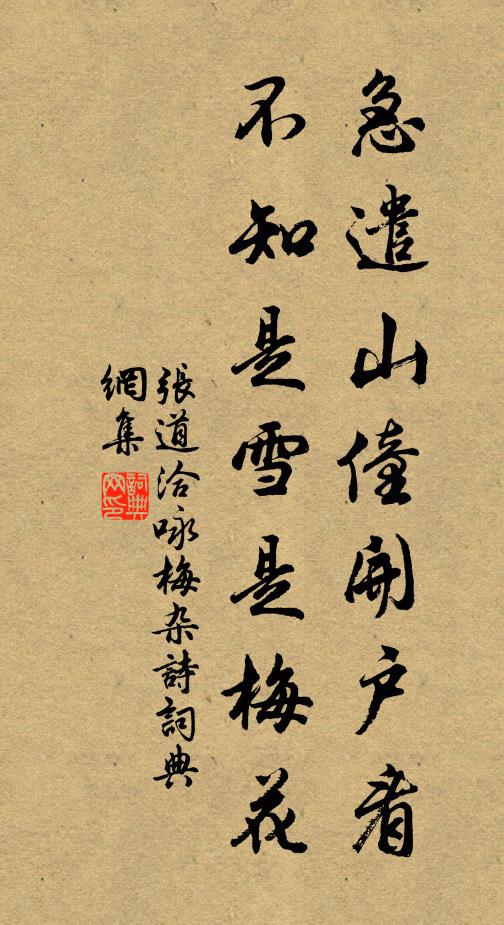 急遣山僮開户看
不知是雪是梅花
張道洽咏梅杂詩詞典
網集
詞典
网印